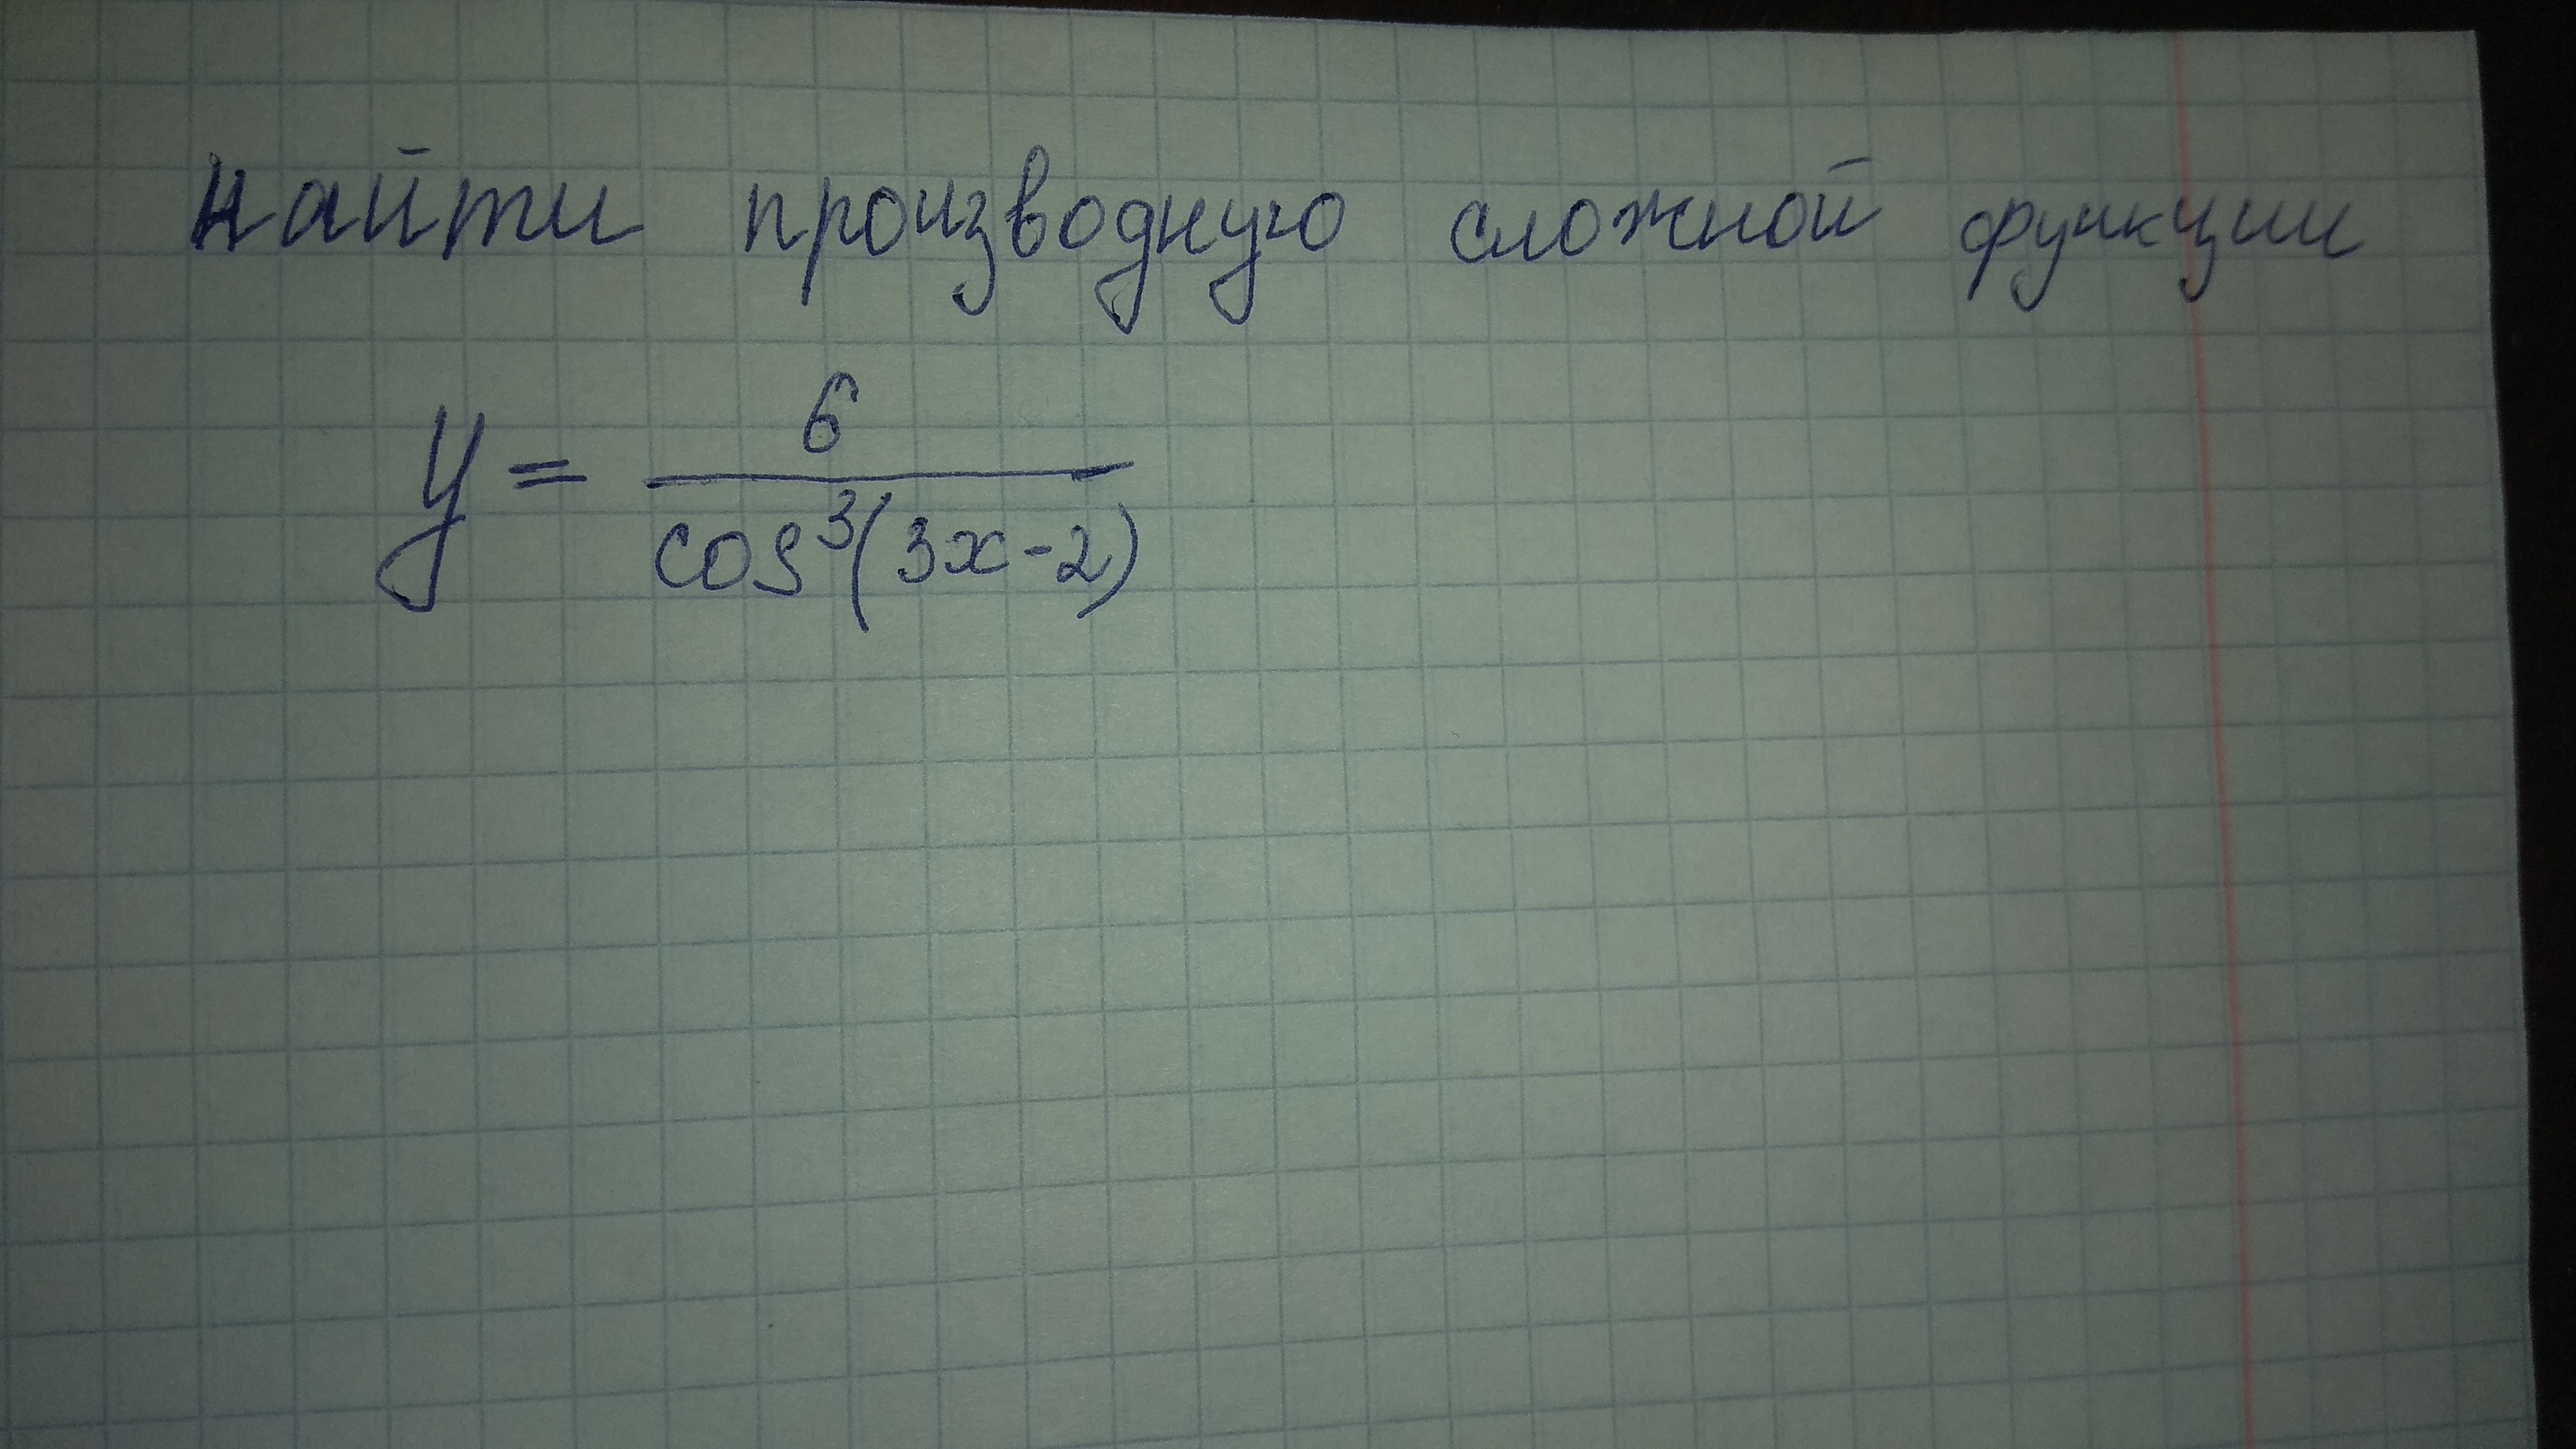 Найти производную сложной функции
y = 6 / cos³(3x-2)